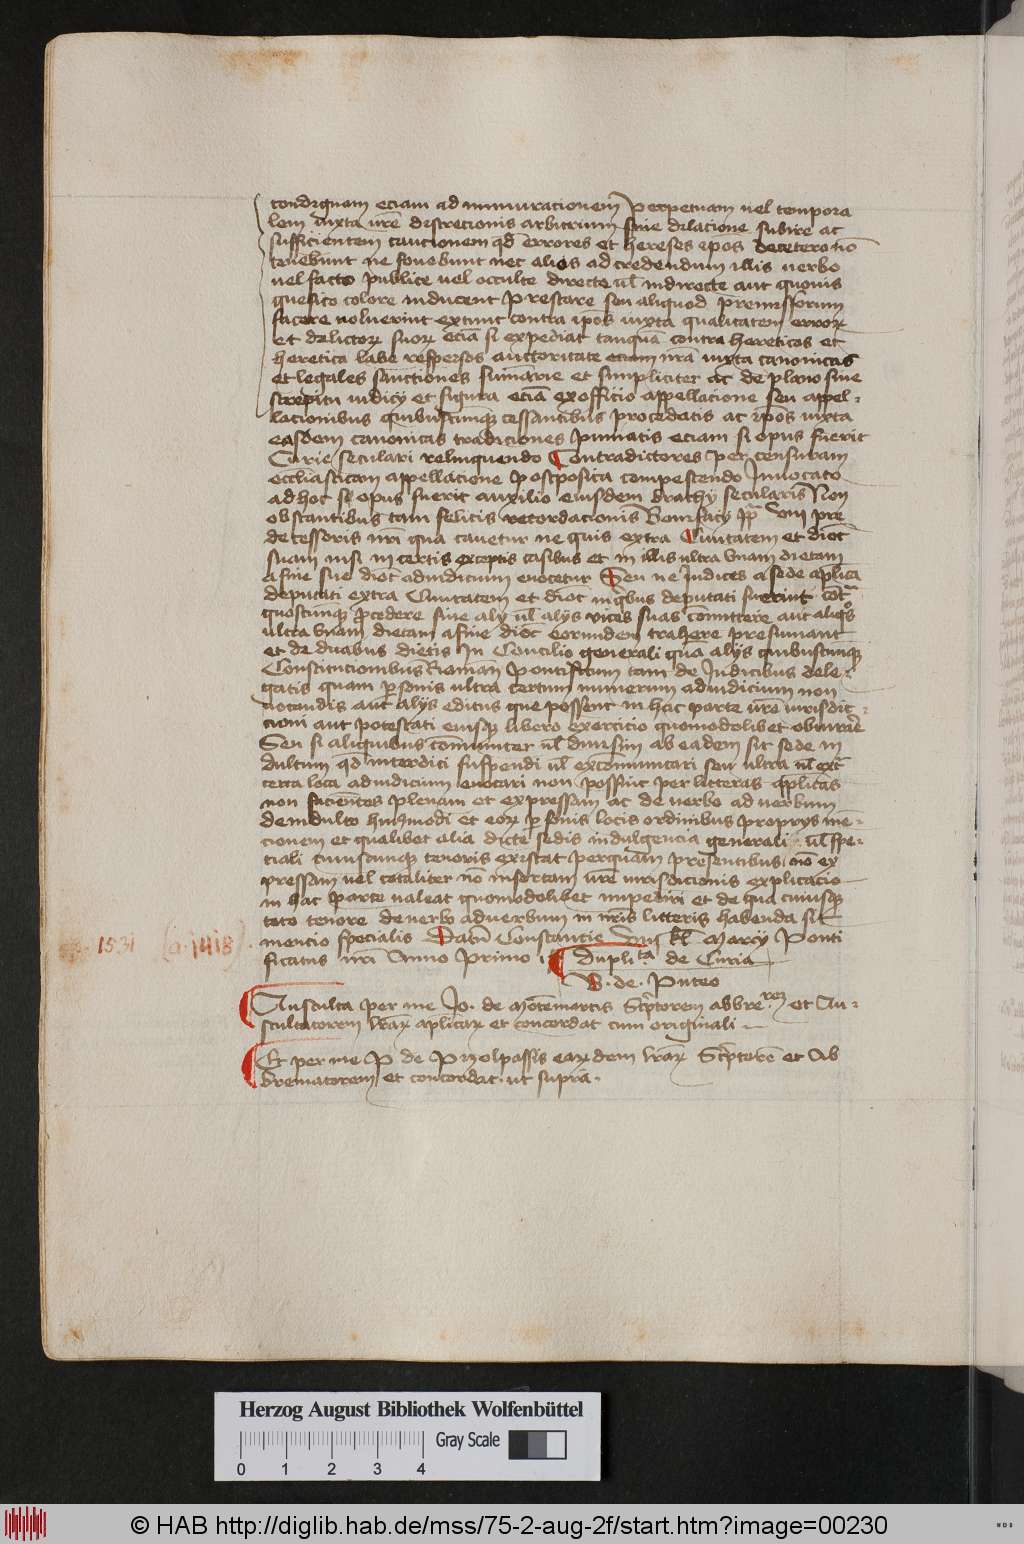 condignam eciam ad inmuracionem perpetuam vel tempora
lem iuxta vr̄e discrecionis arbitrium sine dilacione subire ac
sufficientem caucionem qd̄ errores et hereses ip̄os decetero nō
tenebunt ne fovebunt nec alios ad credendum illis verbo
vel facto publice vel occulte directe vl̄ indirecte aut quovis
quesito colore inducent prestare seu aliquod premissorum
facere noluerint extunc contra ip̄os iuxta qualitatem erroꝝ
et delictoꝝ suoꝝ eciā si expediat tanquā contra hereticos et
heretica labe respersos auctoritate eciam nr̄a iuxta canonicas
et legales sanctiones summarie et simpliciter ac de plano sine
strepitu iudicy et figura eciā ex officio appellacione seu appel-
lacionibus quibuscunqꝫ cessantibus procedatis ac ip̄os iuxta
easdem canonicas tradiciones puniatis eciam si opus fuerit
Curie seculari relinquendo Contradictores per censuram
eccl̄iasticam appellacione postposita compescendo Invocato
ad hoc si opus fuerit auxilio eiusdem brachy secularis Non
obstantibus tam felicis recordacionis Bonifacy pp̄ viij pre
decessoris nr̄i qua cavetur ne quis extra Civitatem et dioc̄
suam nisi in certis exceptis casibus et in illis ultra unam dietam
a fine sue dioc̄ ad iudicium evocetur Seu ne Iudices a sede apl̄ica
deputati extra Civitatem et dioc̄ in qⁱbus deputati fuerint cōtᵃ
quoscunqꝫ pcedere sive aly vl̄ alys vices suas cōmittere aut aliqᵒs
ultra unam dietam a fine dioc̄ eorundem trahere presumant
et de duabus dietis in Concilio generali quā alys quibuscunqꝫ
Constitucionibus Romanoꝝ Pontificum tam de Iudicibus dele-
gatis quam psonis ultra certum numerum ad iudicium non
vocandis aut alys editis que possent in hac parte vr̄e iurisdic-
cioni aut potestati eiusqꝫ libero exercicio quomodolibet obviare
Seu si aliquibus cōmuniter vl̄ divisim ab eadem sit sede in
dultum qd̄ interdici suspendi vl̄ excōmunicari seu ultra vl̄ extᵃ
certa loca ad iudicium evocari non possint per litteras apl̄icas
non facientes plenam et expressam ac de verbo ad verbum
de indulto hmōi et eoꝝ psonis locis ordinibus proprys mē-
cionem et qualibet alia dicte sedis indulgencia generali vl̄ spe-
ciali cuiuscunqꝫ tenoris existat per quam presentibus nō ex
pressam vel totaliter nō insertam vr̄e iurisdicionis explicacio
in hac parte valeat quomodolibet impediri et de qua cuiusqꝫ
toto tenore de verbo ad verbum in nr̄is litteris habenda sit
mencio specialis Datū Constancie viij kl̄ Marcy Ponti
ficatus nr̄i Anno Primo
1531 (a. 1418)
dupliᵗᵃ de Curia
B. de. Puteo
Ausculta per me Jo. de Montemartis Scptorem abbreᵛᵉᵐ et Au-
scultatorem lr̄aꝝ aplicaꝝ et concordat cum originali
Et per me P de Pizolpassis earꝫdem lr̄aꝝ Scptorē et Ab
breviatorem et concordat. ut supra.
Herzog August Bibliothek Wolfenbüttel
Gray Scale
0 1 2 3 4
© HAB http://diglib.hab.de/mss/75-2-aug-2f/start.htm?image=00230